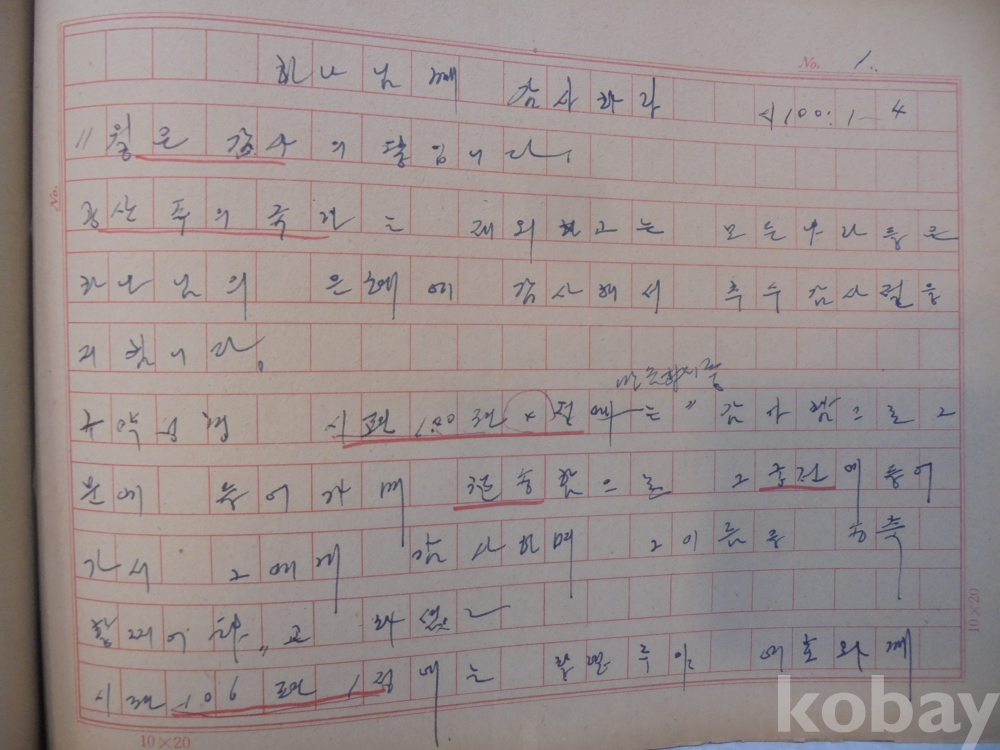 No. 1.
하나님께 감사하라 시100:1-4
11월은 감사의 달입니다.
공산주의 국가는 제외하고는 모든 우리들은
하나님의 은혜에 감사해서 추수감사절을
지킵니다.
구약성경 시편 100편 4절에는 "감사함으로 그
문에 들어가며 찬송함으로 그 궁전에 들어
가서 그에게 감사하며 그 이름을 송축
할찌어다" 고 하였고
시편 106편 1절에는 할렐루야 여호와께
No.
10×20
10×20
kobay